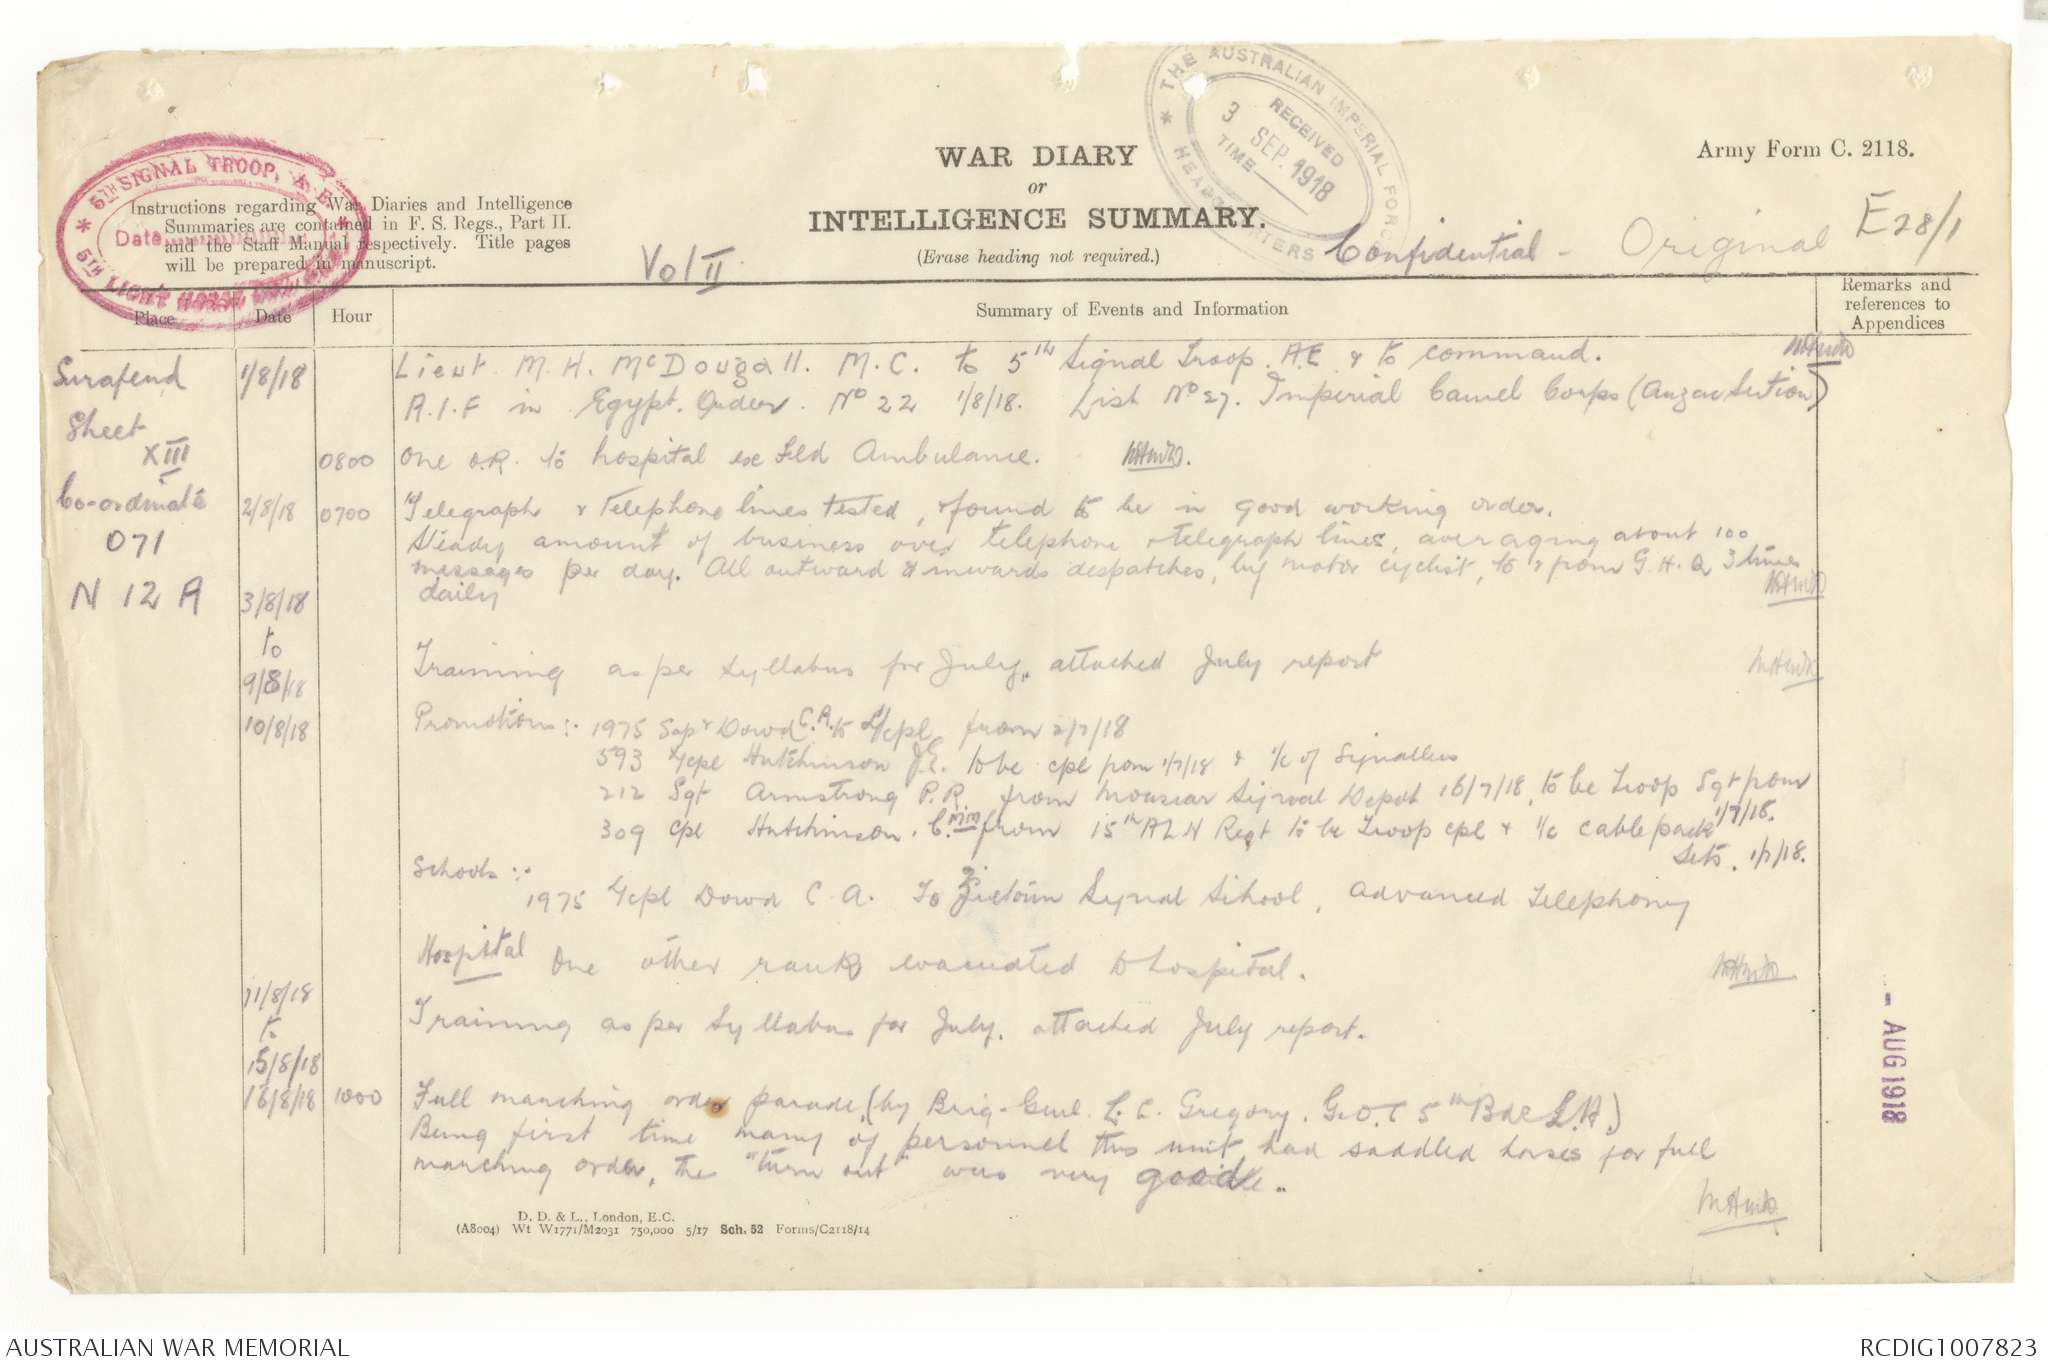 WAR DIARY
or
INTELLIGENCE SUMMARY.
(Erase heading not required.)
Army Form C. 2118.
E28/1
Confidential - Original
Vol II
Instructions regarding War Diaries and Intelligence
Summaries are contained in F. S. Regs., Part II.
and the Staff Manual respectively. Title pages
will be prepared in manuscript.
* 5TH SIGNAL TROOP, A. E. *
Date
5TH LIGHT HORSE
* THE AUSTRALIAN IMPERIAL FORCE
HEADQUARTERS
RECEIVED
3 SEP. 1918
TIME
Place Date Hour Summary of Events and Information
Remarks and
references to
Appendices
Surafend
Sheet
XIII
Co-ordinate
O71
N 12 A
1/8/18 Lieut. M. H. McDougall. M.C. to 5th Signal Troop. A.E & to command.
A.I.F in Egypt. Order. No 22 1/8/18. List No 27. Imperial Camel Corps (Anzac Section)
0800 One O.R. to hospital ex Fld Ambulance.
2/8/18 0700 Telegraph & Telephone lines tested, & found to be in good working order.
Steady amount of business over telephone & telegraph lines, averaging about 100
messages per day. All outward & inwards despatches, by motor cyclist, to & from G.H.Q 3 times
daily
3/8/18
to
9/8/18
Training as per Syllabus for July, attached July report
10/8/18 Promotions:- 1975 Sapr Dowd C.A. to L/cpl from 2/7/18
593 L/cpl Hutchinson J.E. to be cpl from 1/7/18 & i/c of Signallers
212 Sgt Armstrong P.R. from Moascar Signal Depot 16/7/18, to be Troop Sgt from
1/7/18.
309 Cpl Hutchinson. C. MM from 15th A L H Regt to be Troop cpl & i/c cable pack
Sets. 1/7/18.
Schools:-
1975 L/cpl Dowd C. A. To Zeitoun Signal School, Advanced Telephony
Hospital One other rank evacuated to hospital.
11/8/18
to
15/8/18
Training as per Syllabus for July. attached July report.
16/8/18 1000 Full marching order parade, (by Brig-Genl. L. C. Gregory. G.O.C 5th Bde L.H.)
Being first time many of personnel this unit, had saddled horses for full
marching order, the "turn out" was very good.
- AUG 1918
D. D. & L., London, E.C.
(A8004) Wt W1771/M2031 750,000 5/17 Sch. 52 Forms/C2118/14
AUSTRALIAN WAR MEMORIAL
RCDIG1007823